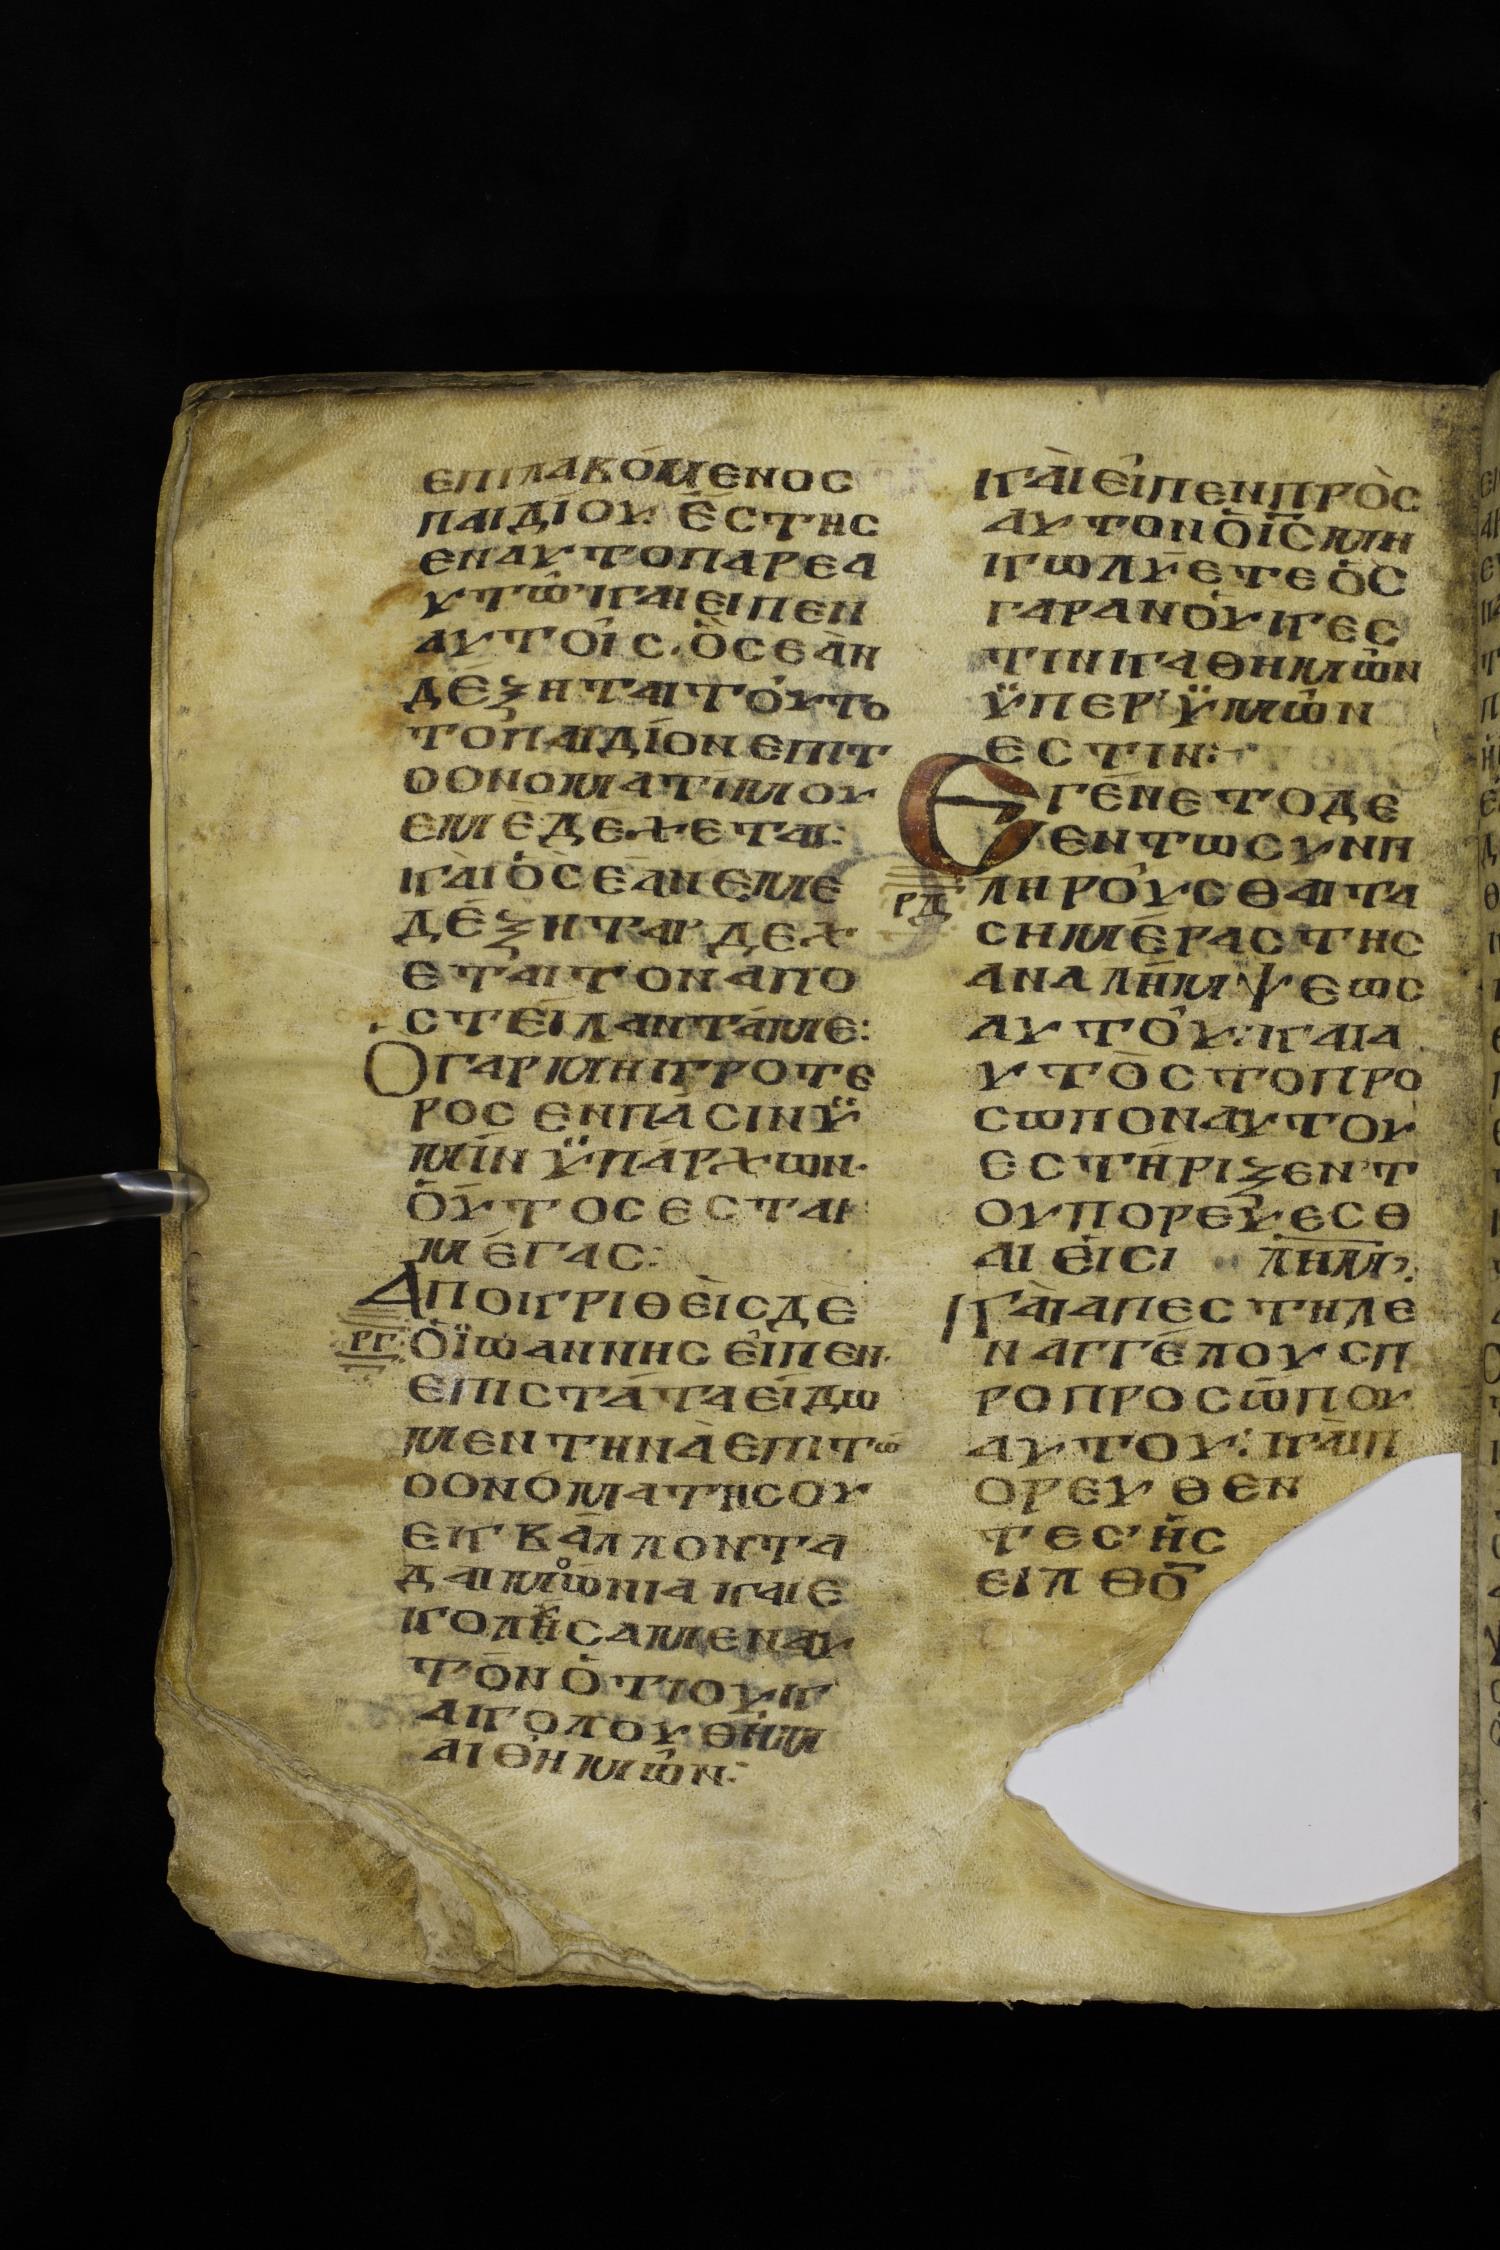 ΕΠΙΛΑΒΌΜΕΝΟΣ
ΠΑΙΔΊΟΥ. ΈΣΤΗΣ
ΕΝΑΥΤΟΠΑΡΕΑ
ΥΤΩ͂ ΚΑΙΕΙΠΕΝ
ΑΥΤΟΙΣ. ὋΣΕᾺΝ
ΔΈΞΗΤΑΙΤΟΥΤΟ
ΤΟΠΑΙΔΊΟΝΕΠΙΤ
ΟΟΝΟΜΑΤΙΜΟΥ
ΕΜῈΔΕΧΕΤΑΙ:
ΚΑῚὉΣΕᾺΝΕΜΕ
ΔΈΞΗΤΑΙ ΔΕΧ
ΕΤΑΙΤΟΝΑΠΟ
ΣΤΕΊΛΑΝΤΆΜΕ:
ΟΓΑΡΜΗΚΡΟΤΕ
ΡΟΣΕΝΠΑΣΙΝΫ
ΜΙΝΫΠΆΡΧΩΝ.
ὉΥΤΟΣΕΣΤΑΙ
ΜΈΓΑΣ:
ΑΠΟΚΡΙΘΕῚΣΔῈ
ΡΓ ὉΪΩΑΝΝΗΣΕΙΠΕΝ.
ΕΠΙΣΤΆΤΑΕΊΔΩ
ΜΕΝΤΗΝᾺΕΠΙΤΩ
ΟΟΝΌΜΑΤΗΣΟΥ
ΕΚΒΆΛΛΟΝΤΑ
ΔΑΙΜΟΏΝΙΑΚΑΙΕ
ΚΟΛΥΗΣΑΜΕΝΑΥ
ΤΟΝὉΤΙΟΥΚ
ΑΚΟΛΟΥΘΗΜ
ΑΙΘΗΜΩΝ:
ΚᾺΙΕΙΠΕΝΠΡῸΣ
ΑΥΤΟΝὉΙ͞ΣΜΗ
ΚΩΛΥΕΤΕὉΣ
ΓΑΡΑΝΟΥΚΕΣ
ΤΙΝΚΑΘΗΜΩΝ
ΫΠΕΡΫΜΩΝ
ΕΣΤΙΝ:
ΕΓΈΝΕΤΟΔῈ
ΕΝΤΩΣΥΝΠ
ΡΔ ΛΗΡΟΥΣΘΑΙΤΑ
ΣΗΜΈΡΑΣΤΗΣ
ΑΝΑΛΉΜΨΕΩΣ
ΑΥΤΟΥ: ΚΑΙΑ
ΥΤῸΣΤΟΠΡΟ
ΣΩΠΟΝΑΥΤΟΥ
ΕΣΤΉΡΙΞΕΝΤ
ΟΥΠΟΡΕΥΕΣΘ
ΑΙΕΙΣΙ ΛΗΜ:
ΚᾺΙΑΠΕΣΤΗΛΕ
ΝΑΓΓΈΛΟΥΣΠ
ΡΟΠΡΟΣΩΠΟΥ
ΑΥΤΟΥ: ΚᾺΙΠ
ΟΡΕΥΘΕΝ
ΤΕΣΗΣ
ΕΙΛΘΟ